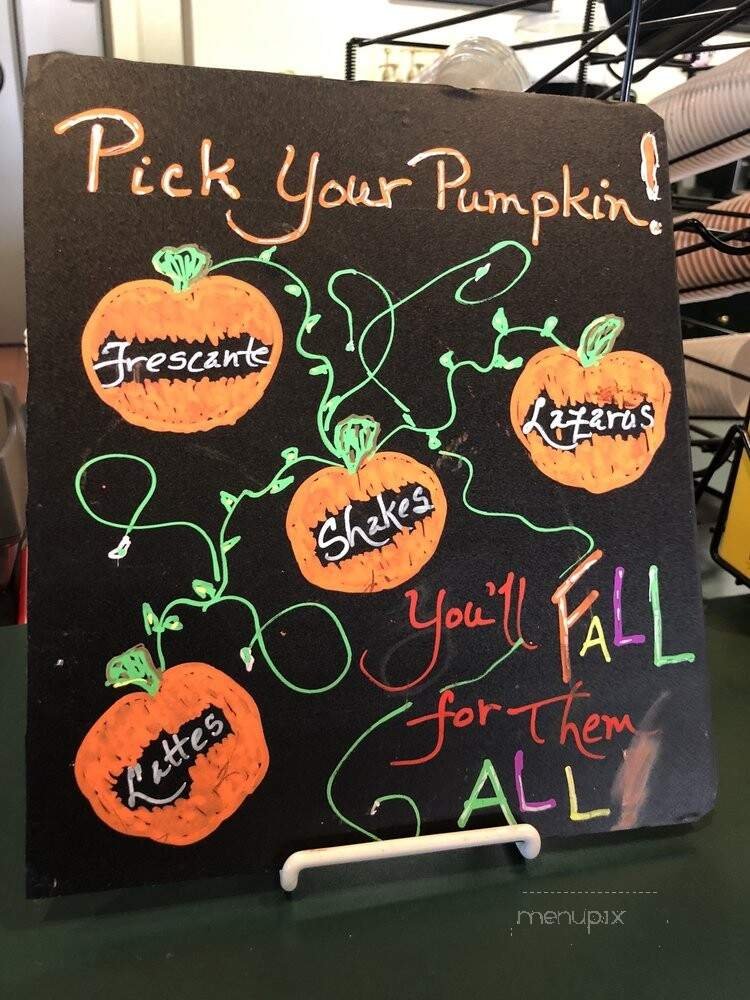 Pick Your Pumpkin!
Frescante
Lazarus
Shakes
You'll FALL
for Them
ALL!
Lattes
menupix